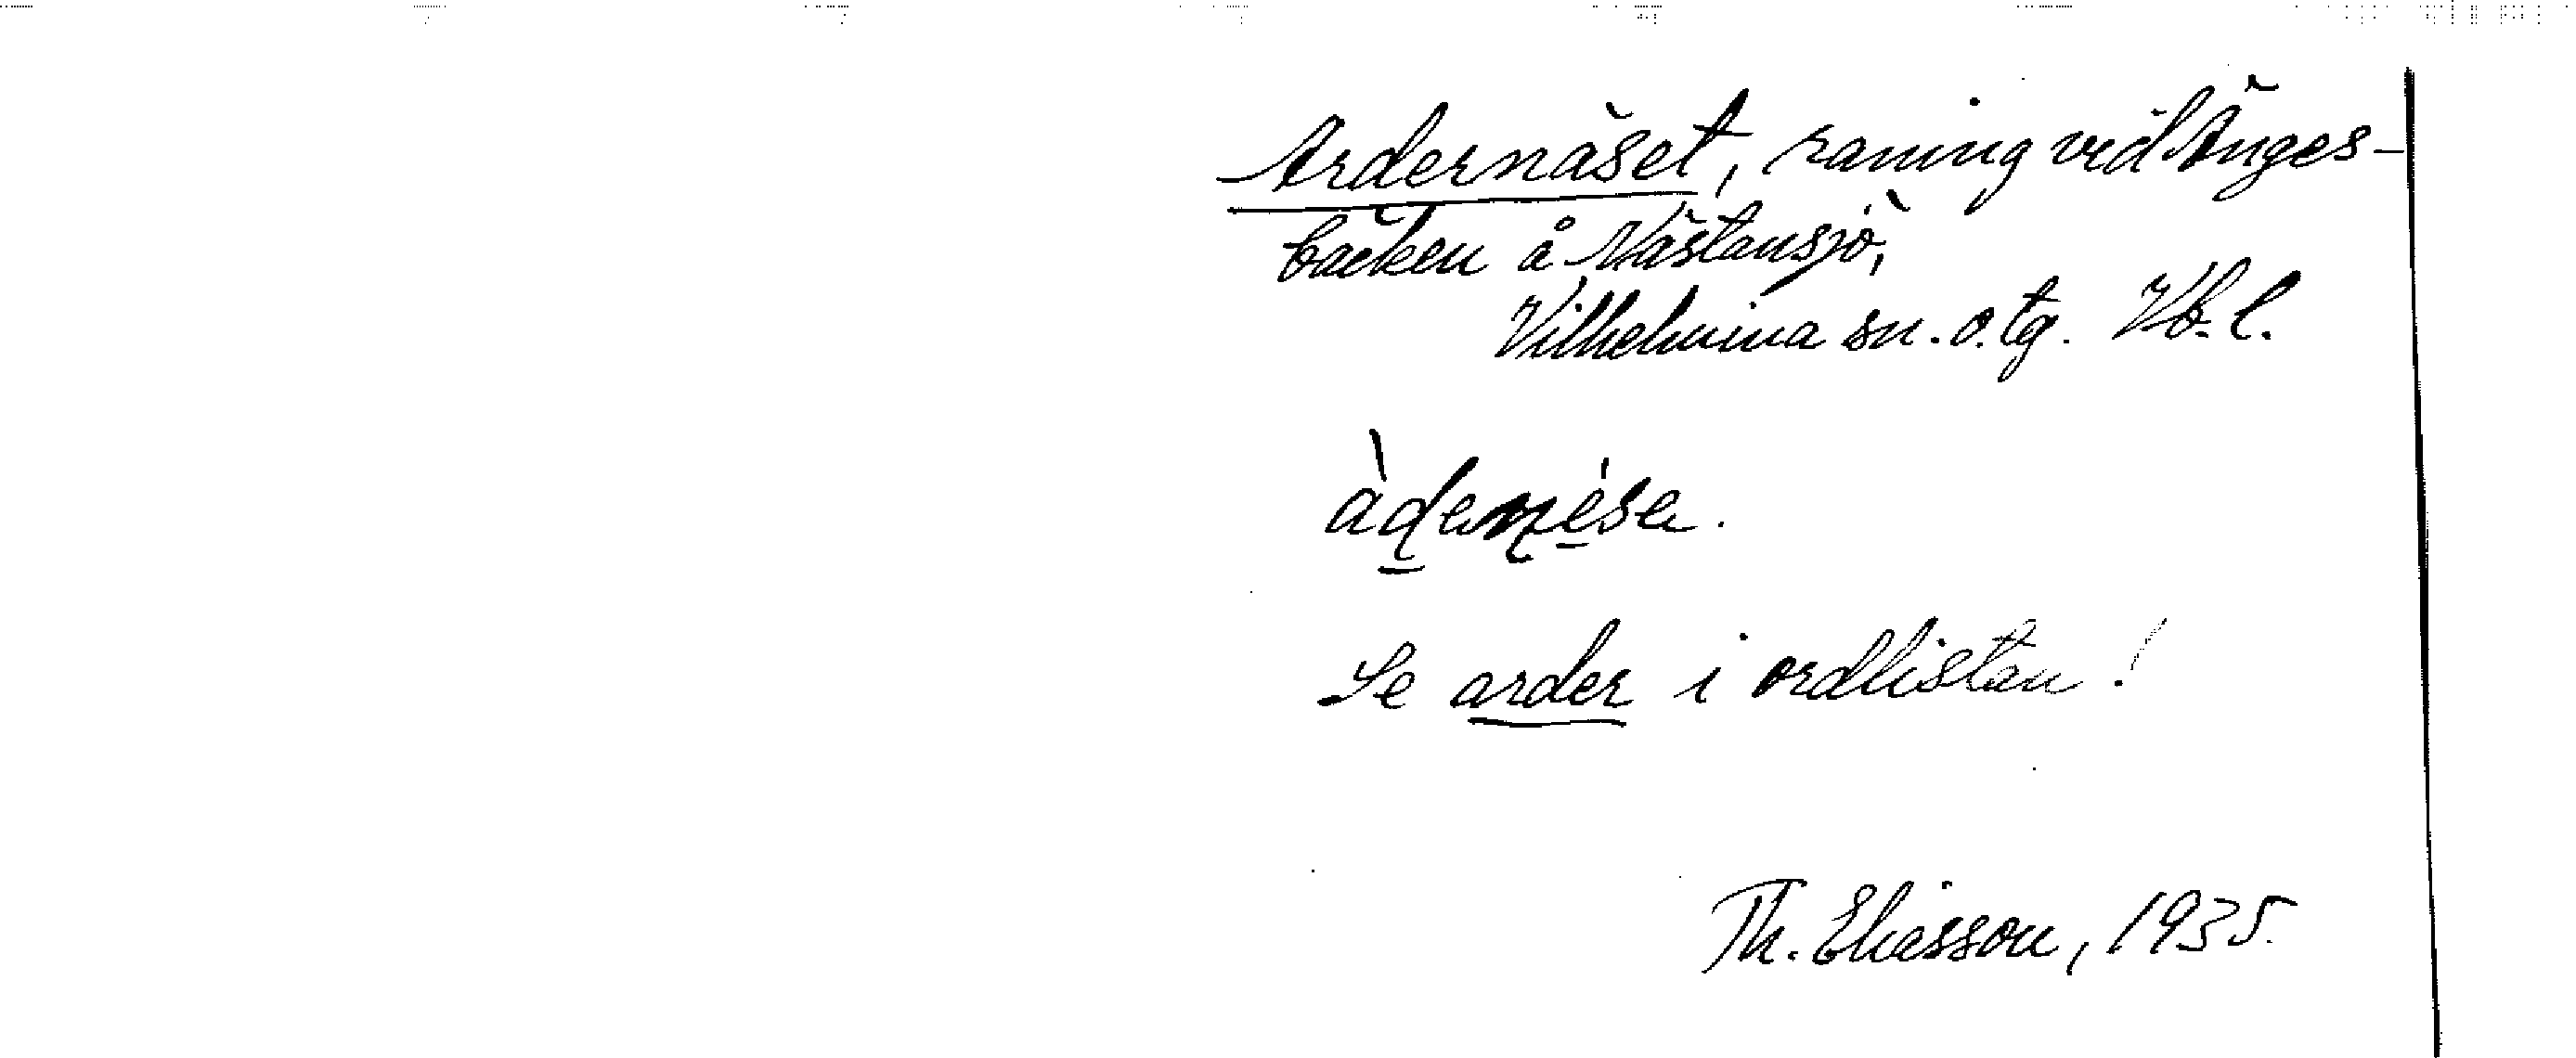 Ardernäset, raning vid Änges-
bäcken å Nästansjö,
Vilhelmina sn. o. tg. Vb. l.
àḍeṇése.
Se arder i ordlistan!
Th. Eliasson, 1935.